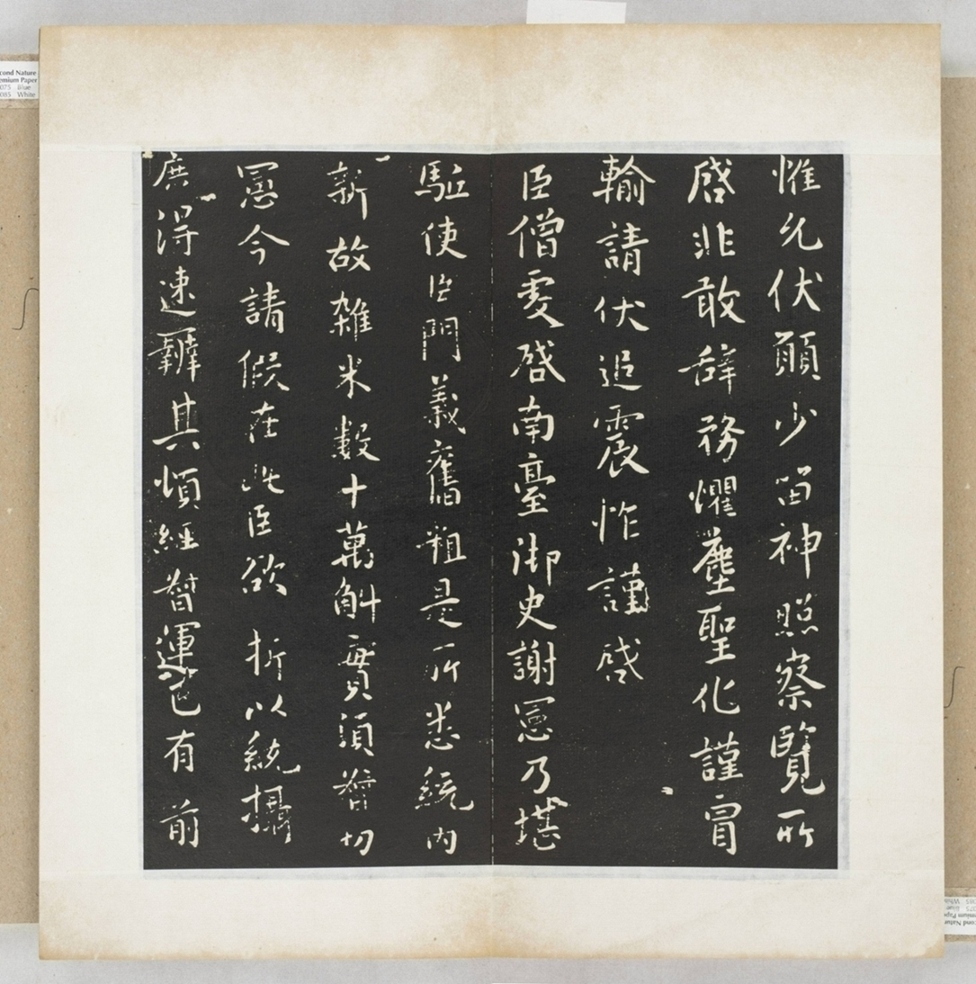 惟允伏願少留神照察覽所
啓非敢辞務懼塵聖化謹冒
輸請伏追震怍謹啓
臣僧虔啓南臺御史謝憲乃堪
駈使臣門義舊粗是所悉統内
新故雑米數十萬斛實須督切
憲今請假在此臣欲折以統攝
庶得速辦其煩經督運已有前
cond Nature
emium Paper
075 Blue
085 White